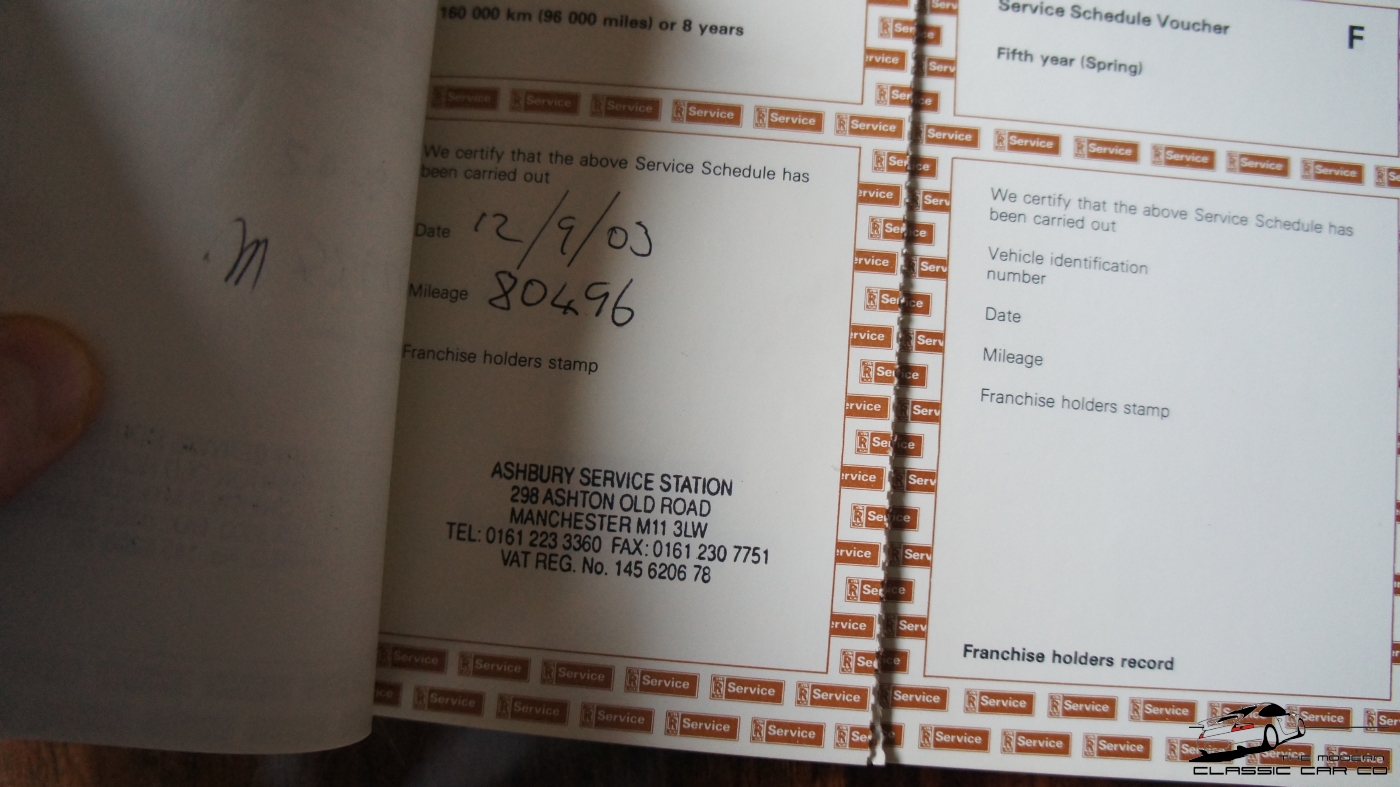 160 000 km (96 000 miles) or 8 years
We certify that the above Service Schedule has
been carried out
Date 12/9/03
Mileage 80496
Franchise holders stamp
ASHBURY SERVICE STATION
298 ASHTON OLD ROAD
MANCHESTER M11 3LW
TEL: 0161 223 3360 FAX: 0161 230 7751
VAT REG. No. 145 6206 78
Service Schedule Voucher
F
Fifth year (Spring)
We certify that the above Service Schedule has
been carried out
Vehicle identification
number
Date
Mileage
Franchise holders stamp
Franchise holders record
Service Service Service Service Service Service Service Service Service Service Service Service
Service Service Service Service Service Service Service Service Service Service
THE MODERN
CLASSIC CAR CO